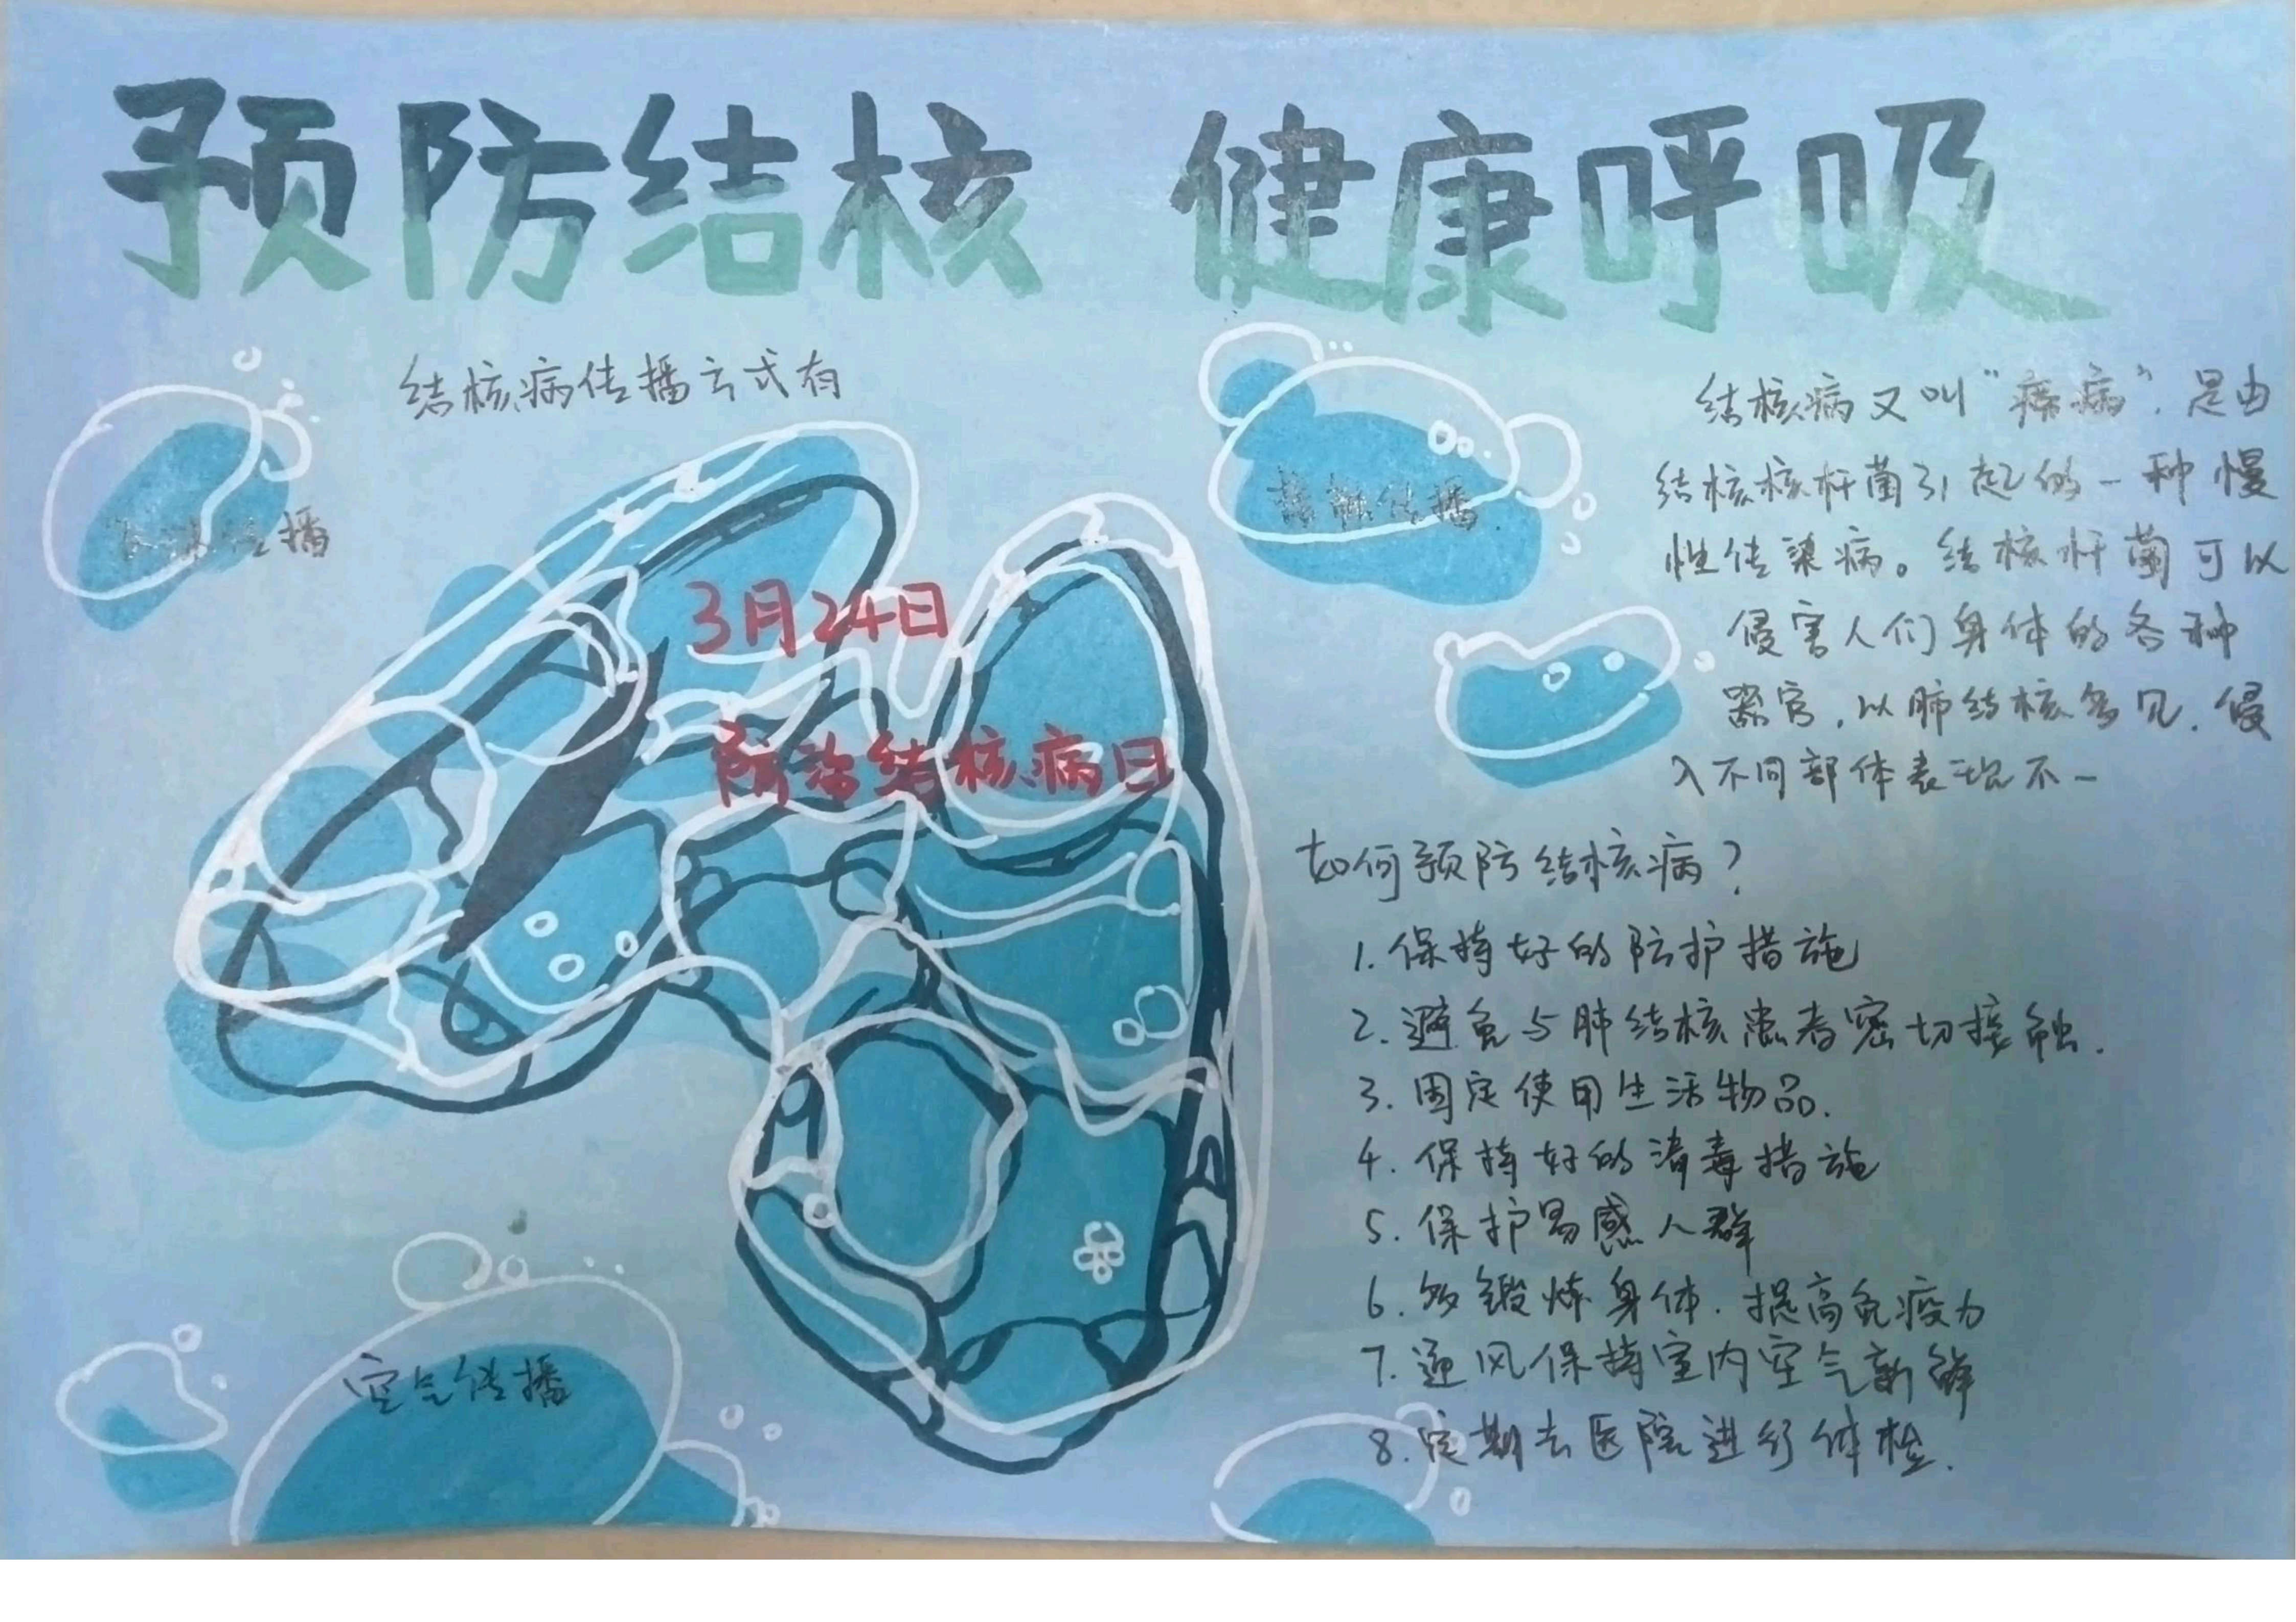 预防结核 健康呼吸
结核病传播方式有
传播
接触传播
3月24日
防治结核病日
空气传播
结核病又叫“痨病”，是由
结核核杆菌引起的一种慢
性传染病。结核杆菌可以
侵害人们身体的各种
器官，以肺结核多见，侵
入不同部体表现不一
如何预防结核病？
1.保持好的防护措施
2.避免与肺结核患者密切接触.
3.固定使用生活物品.
4.保持好的消毒措施
5.保护易感人群
6.多锻炼身体.提高免疫力
7.通风保持室内空气新鲜
8.定期去医院进行体检.